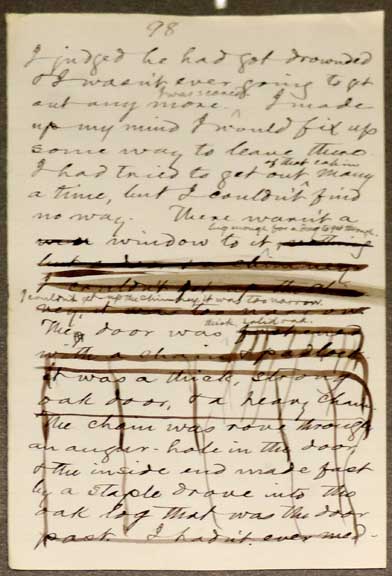 98
I judged he had got drownded
& I wasn't ever going to get
out any more. I was scared. I made
up my mind I would fix up
some way to leave there.
I had tried to get out of that cabin many
a time, but I couldn't find
no way. There warn't a
window to it big enough for a dog to get through.
I couldn't get up the chimney, it was too narrow.
The door was thick solid oak.
with a chain & padlock.
it was a thick, strong
oak door, & a heavy chain.
The chain was rove through
an auger-hole in the door
& the inside end made fast
by a staple drove into the
oak log that was the door
post. I hadn't ever